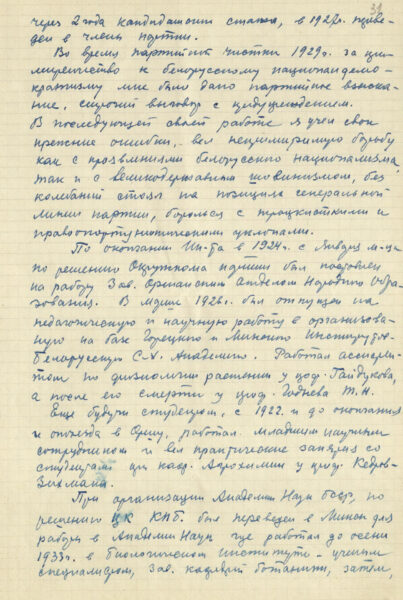 32
через 2 года кандидатский стаж, в 1927г. переве-
ден в члены партии.
Во время партийной чистки 1929г. за при-
миренчество к белорусскому национал-демо-
кратизму мне было дано партийное взыска-
ние, строгий выговор с предупреждением.
В последующей своей работе я учел свои
прежние ошибки, вел непримиримую борьбу
как с проявлениями белорусского национализма,
так и с великодержавным шовинизмом, без
колебаний стоял на позициях генеральной
линии партии, боролся с троцкистскими и
правооппортунистическими уклонами.
По окончании Ин-та в 1924г. с января м-ца
по решению Окружкома партии был поставлен
на работу Зав. Оршанским отделом Народного Обра-
зования. В марте 1926г. был отпущен на
педагогическую и научную работу в организован-
ную на базе Горецкого и Минского Институтов
Белорусскую С.Х. Академию. Работал ассистен-
том по физиологии растений у проф. Гайдукова,
а после его смерти у проф. Годнева Т.Н.
Еще будучи студентом, с 1922г. и до окончания
и отъезда в Оршу, работал младшим научным
сотрудником и вел практические занятия со
студентами при каф. Агрохимии у проф. Кедров-
Зихмана.
При организации Академии Наук БССР, по
решению ЦК КПБ. был переведен в Минск для
работы в Академии Наук где работал до осени
1933г. в биологическом институте - ученым
специалистом, зав. кафедрой ботаники, затем,